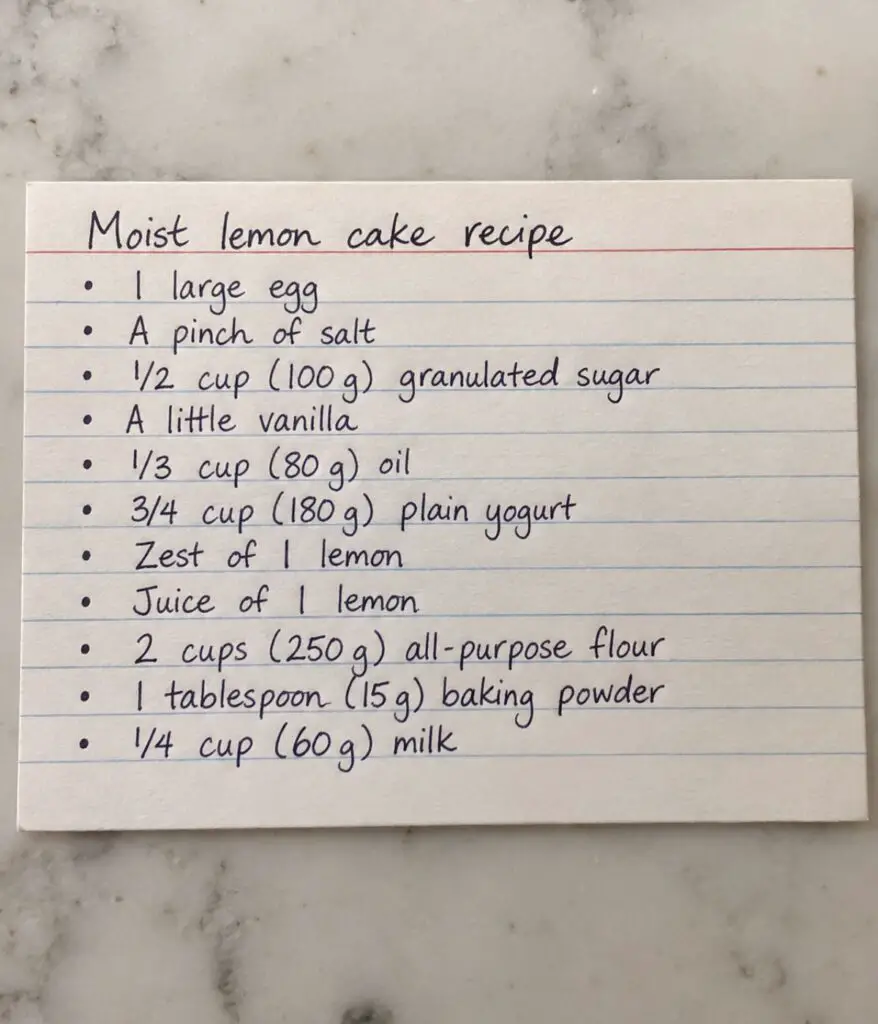 Moist lemon cake recipe
• 1 large egg
• A pinch of salt
• 1/2 cup (100 g) granulated sugar
• A little vanilla
• 1/3 cup (80 g) oil
• 3/4 cup (180 g) plain yogurt
• Zest of 1 lemon
• Juice of 1 lemon
• 2 cups (250 g) all-purpose flour
• 1 tablespoon (15 g) baking powder
• 1/4 cup (60 g) milk